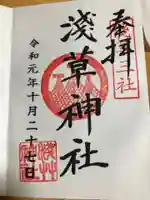 奉拝
三社
淺草神社
令和元年十月二十七日